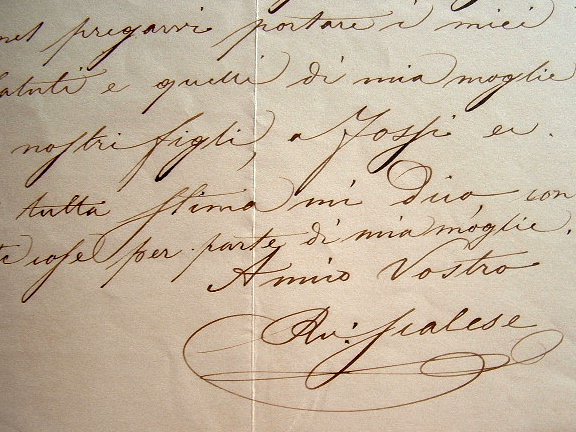 nel pregarvi portare i miei
saluti e quelli di mia moglie
nostri figli, a Jossi ec.
tutta stima mi dico, con
te cose per parte di mia moglie.
Amico Vostro